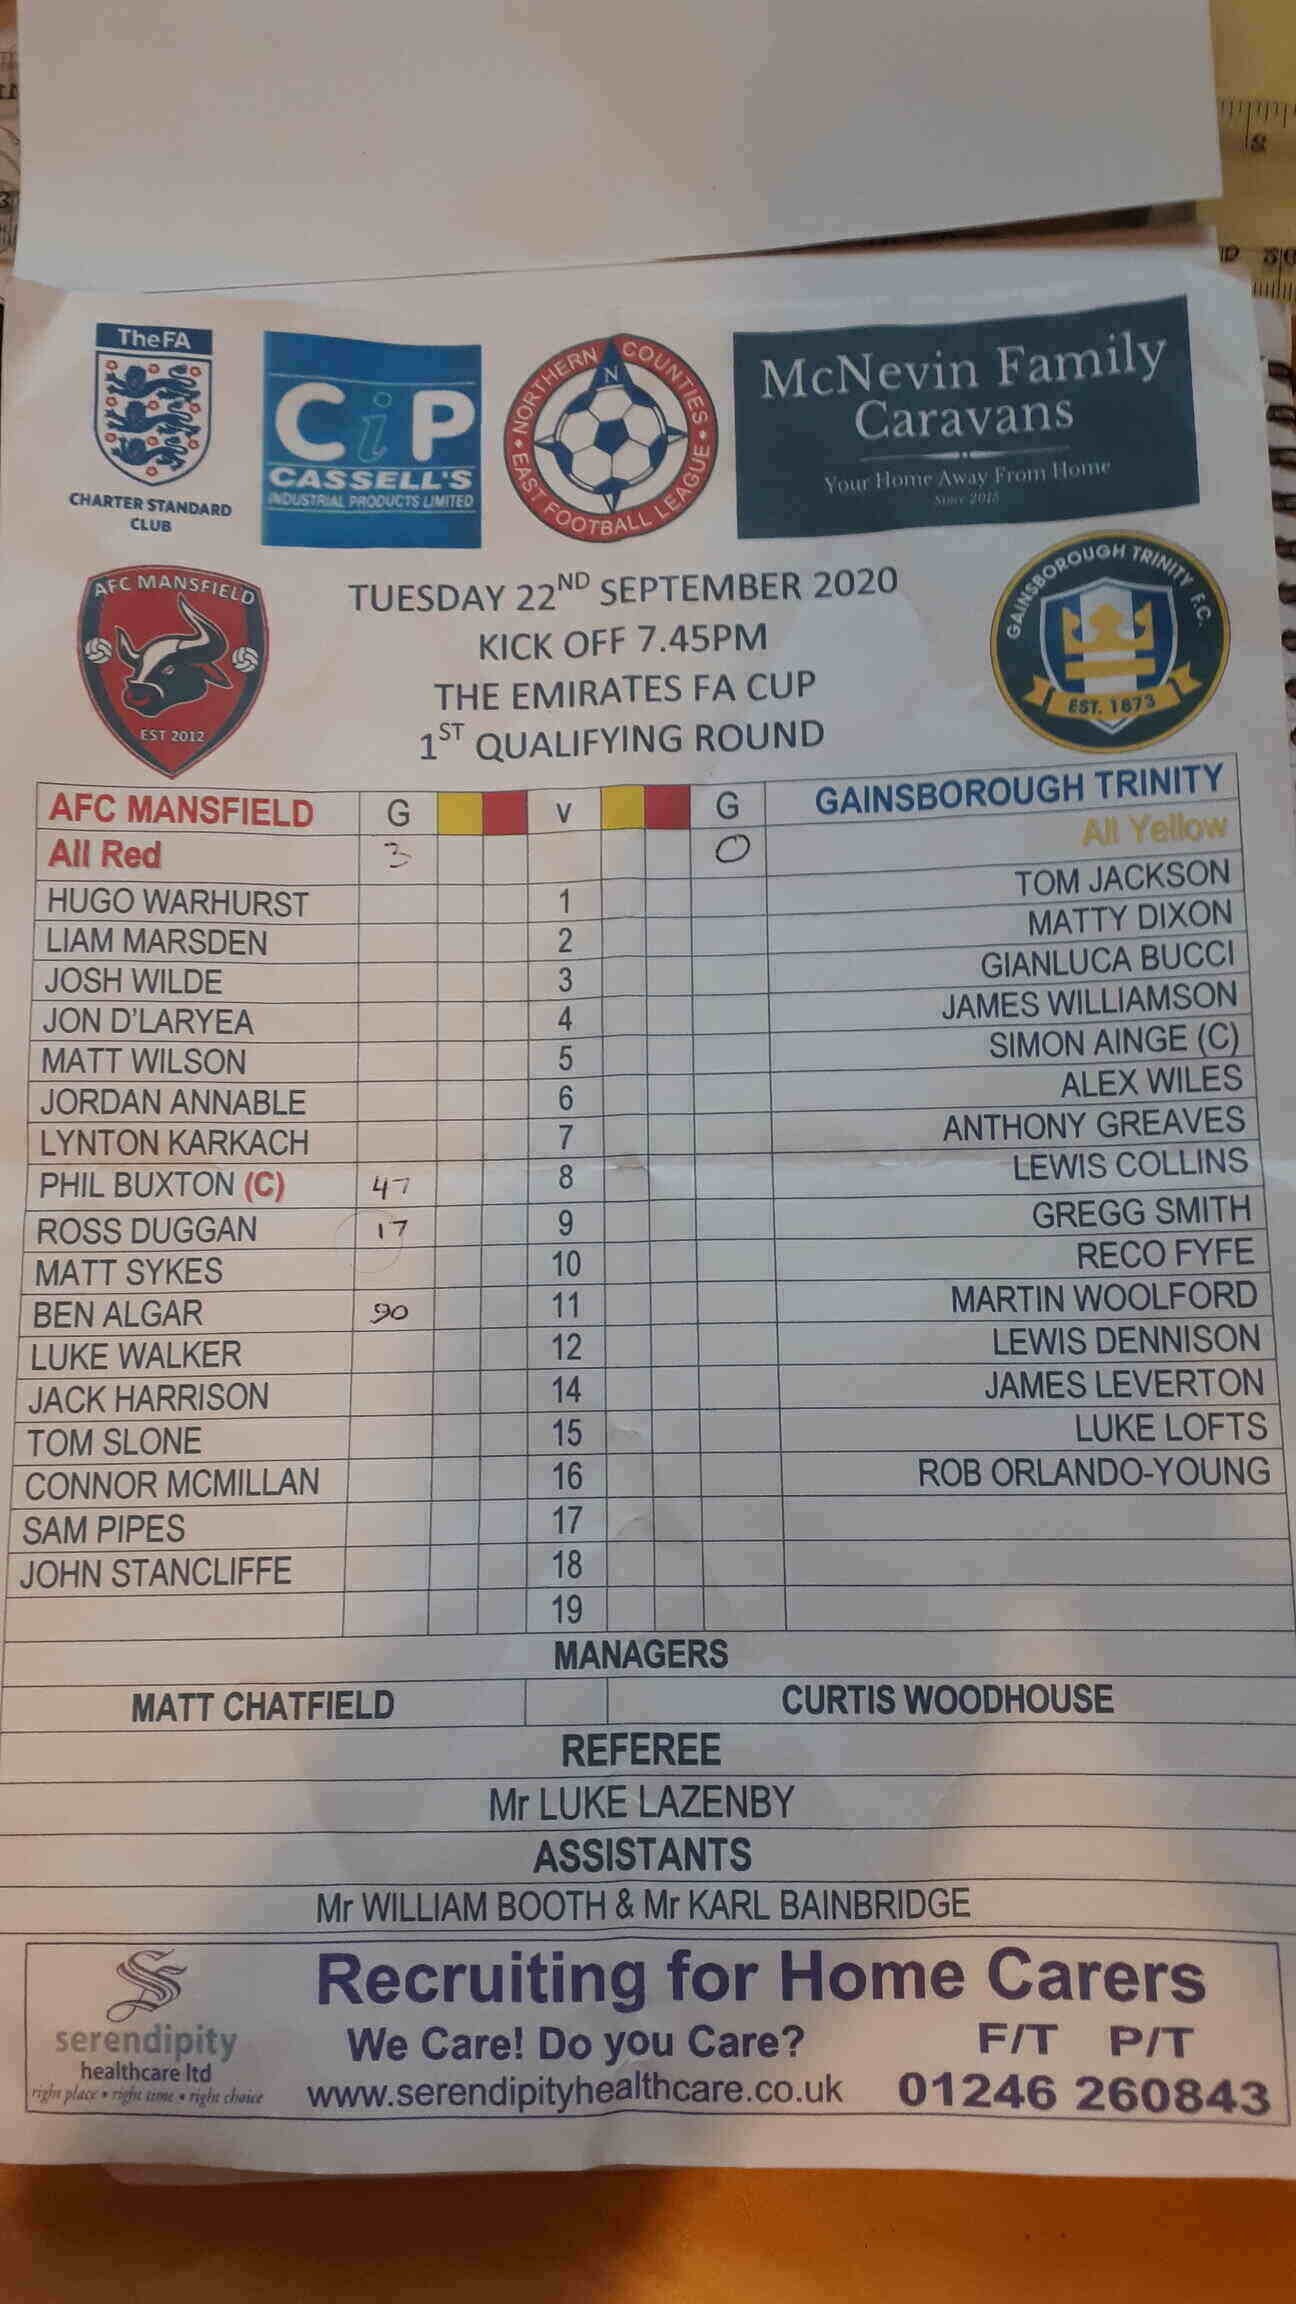 TheFA
CHARTER STANDARD
CLUB
CiP
CASSELL'S
INDUSTRIAL PRODUCTS LIMITED
NORTHERN COUNTIES
N
EAST FOOTBALL LEAGUE
McNevin Family
Caravans
Your Home Away From Home
Since 2015
AFC MANSFIELD
EST 2012
TUESDAY 22ND SEPTEMBER 2020
KICK OFF 7.45PM
THE EMIRATES FA CUP
1ST QUALIFYING ROUND
GAINSBOROUGH TRINITY F.C.
EST. 1873
AFC MANSFIELD G v G GAINSBOROUGH TRINITY
All Red 3 0 All Yellow
HUGO WARHURST 1 TOM JACKSON
LIAM MARSDEN 2 MATTY DIXON
JOSH WILDE 3 GIANLUCA BUCCI
JON D'LARYEA 4 JAMES WILLIAMSON
MATT WILSON 5 SIMON AINGE (C)
JORDAN ANNABLE 6 ALEX WILES
LYNTON KARKACH 7 ANTHONY GREAVES
PHIL BUXTON (C) 47 8 LEWIS COLLINS
ROSS DUGGAN 17 9 GREGG SMITH
MATT SYKES 10 RECO FYFE
BEN ALGAR 90 11 MARTIN WOOLFORD
LUKE WALKER 12 LEWIS DENNISON
JACK HARRISON 14 JAMES LEVERTON
TOM SLONE 15 LUKE LOFTS
CONNOR MCMILLAN 16 ROB ORLANDO-YOUNG
SAM PIPES 17
JOHN STANCLIFFE 18
19
MANAGERS
MATT CHATFIELD CURTIS WOODHOUSE
REFEREE
Mr LUKE LAZENBY
ASSISTANTS
Mr WILLIAM BOOTH & Mr KARL BAINBRIDGE
serendipity
healthcare ltd
right place • right time • right choice
Recruiting for Home Carers
We Care! Do you Care? F/T P/T
www.serendipityhealthcare.co.uk 01246 260843